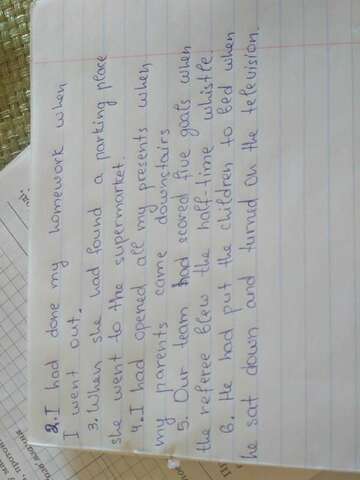 2. I had done my homework when
I went out.
3. When she had found a parking place
she went to the supermarket.
4. I had opened all my presents when
my parents came downstairs
5. Our team had scored five goals when
the referee blew the half-time whistle.
6. He had put the children to bed when
he sat down and turned on the television.